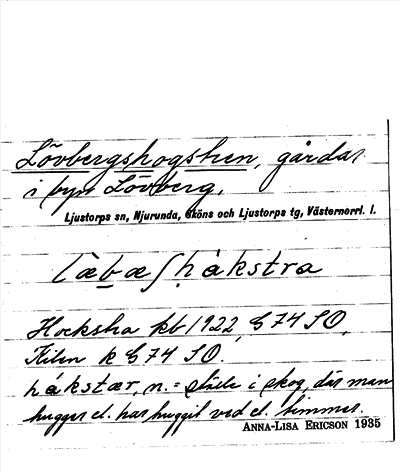 Lövbergshogshen, gårdar
i byn Lövberg,
Ljustorps sn, Njurunda, Sköns och Ljustorps tg, Västernorrl. l.
Hocksha kb 1922, G 74 SO,
Kilen k G 74 SO.
hákstær, n. = ställe i skog, där man
hugger el. har huggit ved el. timmer.
ANNA-LISA ERICSON 1935